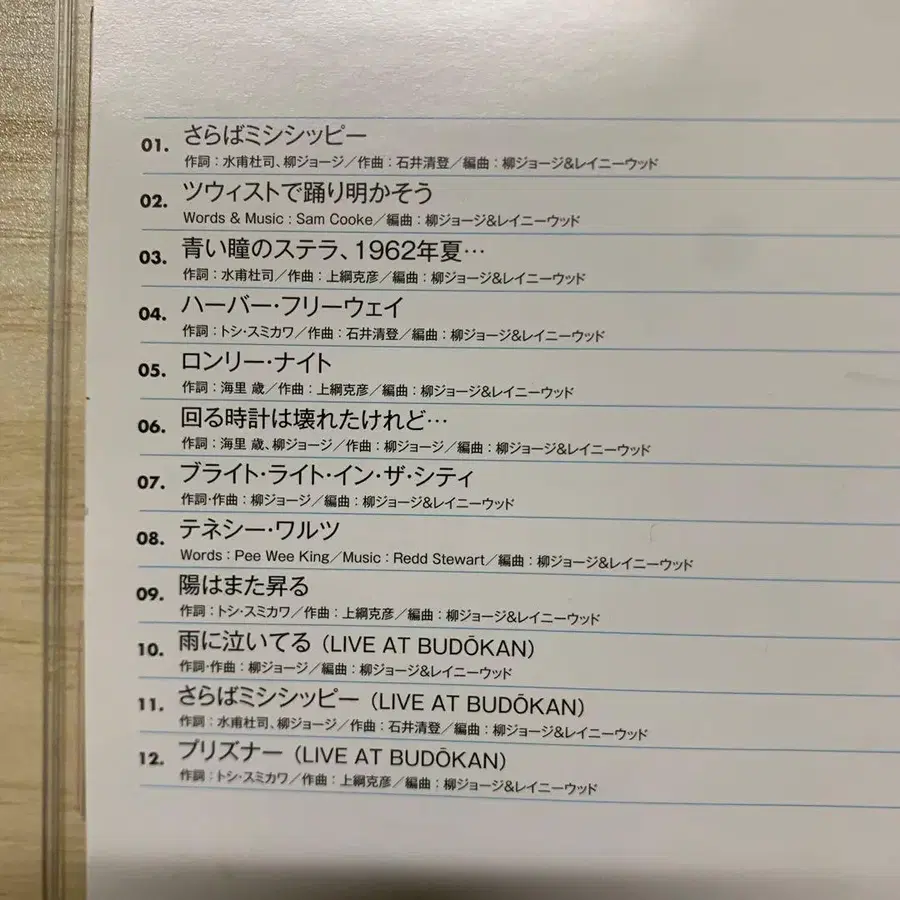 01. さらばミシシッピー
作詞：水甫杜司、柳ジョージ／作曲：石井清登／編曲：柳ジョージ&レイニーウッド
02. ツウィストで踊り明かそう
Words & Music : Sam Cooke／編曲：柳ジョージ&レイニーウッド
03. 青い瞳のステラ、1962年夏…
作詞：水甫杜司／作曲：上綱克彦／編曲：柳ジョージ&レイニーウッド
04. ハーバー・フリーウェイ
作詞：トシ・スミカワ／作曲：石井清登／編曲：柳ジョージ&レイニーウッド
05. ロンリー・ナイト
作詞：海里 歳／作曲：上綱克彦／編曲：柳ジョージ&レイニーウッド
06. 回る時計は壊れたけれど…
作詞：海里 歳、柳ジョージ／作曲：柳ジョージ／編曲：柳ジョージ&レイニーウッド
07. ブライト・ライト・イン・ザ・シティ
作詞・作曲：柳ジョージ／編曲：柳ジョージ&レイニーウッド
08. テネシー・ワルツ
Words : Pee Wee King／Music : Redd Stewart／編曲：柳ジョージ&レイニーウッド
09. 陽はまた昇る
作詞：トシ・スミカワ／作曲：上綱克彦／編曲：柳ジョージ&レイニーウッド
10. 雨に泣いてる (LIVE AT BUDŌKAN)
作詞・作曲：柳ジョージ／編曲：柳ジョージ&レイニーウッド
11. さらばミシシッピー (LIVE AT BUDŌKAN)
作詞：水甫杜司、柳ジョージ／作曲：石井清登／編曲：柳ジョージ&レイニーウッド
12. プリズナー (LIVE AT BUDŌKAN)
作詞：トシ・スミカワ／作曲：上綱克彦／編曲：柳ジョージ&レイニーウッド